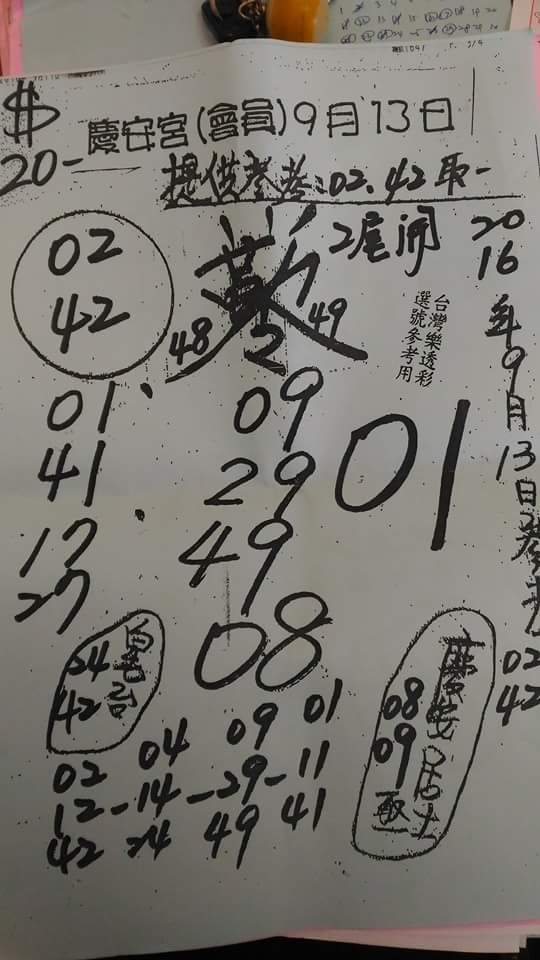 $
慶安宮(會員)9月13日
20-
提供參考:02.42取一
02
42
48
2
49
2尾開
台灣樂透彩
選號參考用
2016年9月13日參考
02
42
01
41
17
27
09
29
49
01
08
24
42
慶安居士
08
09
取一
02 04 09 01
12-14-29-11
42 24 49 41